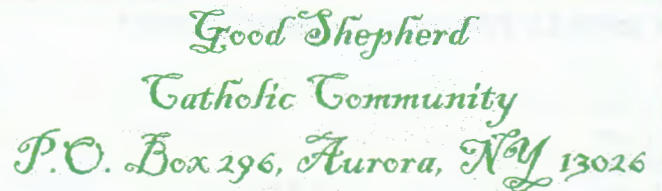 Good Shepherd
Catholic Community
P.O. Box 296, Aurora, NY 13026